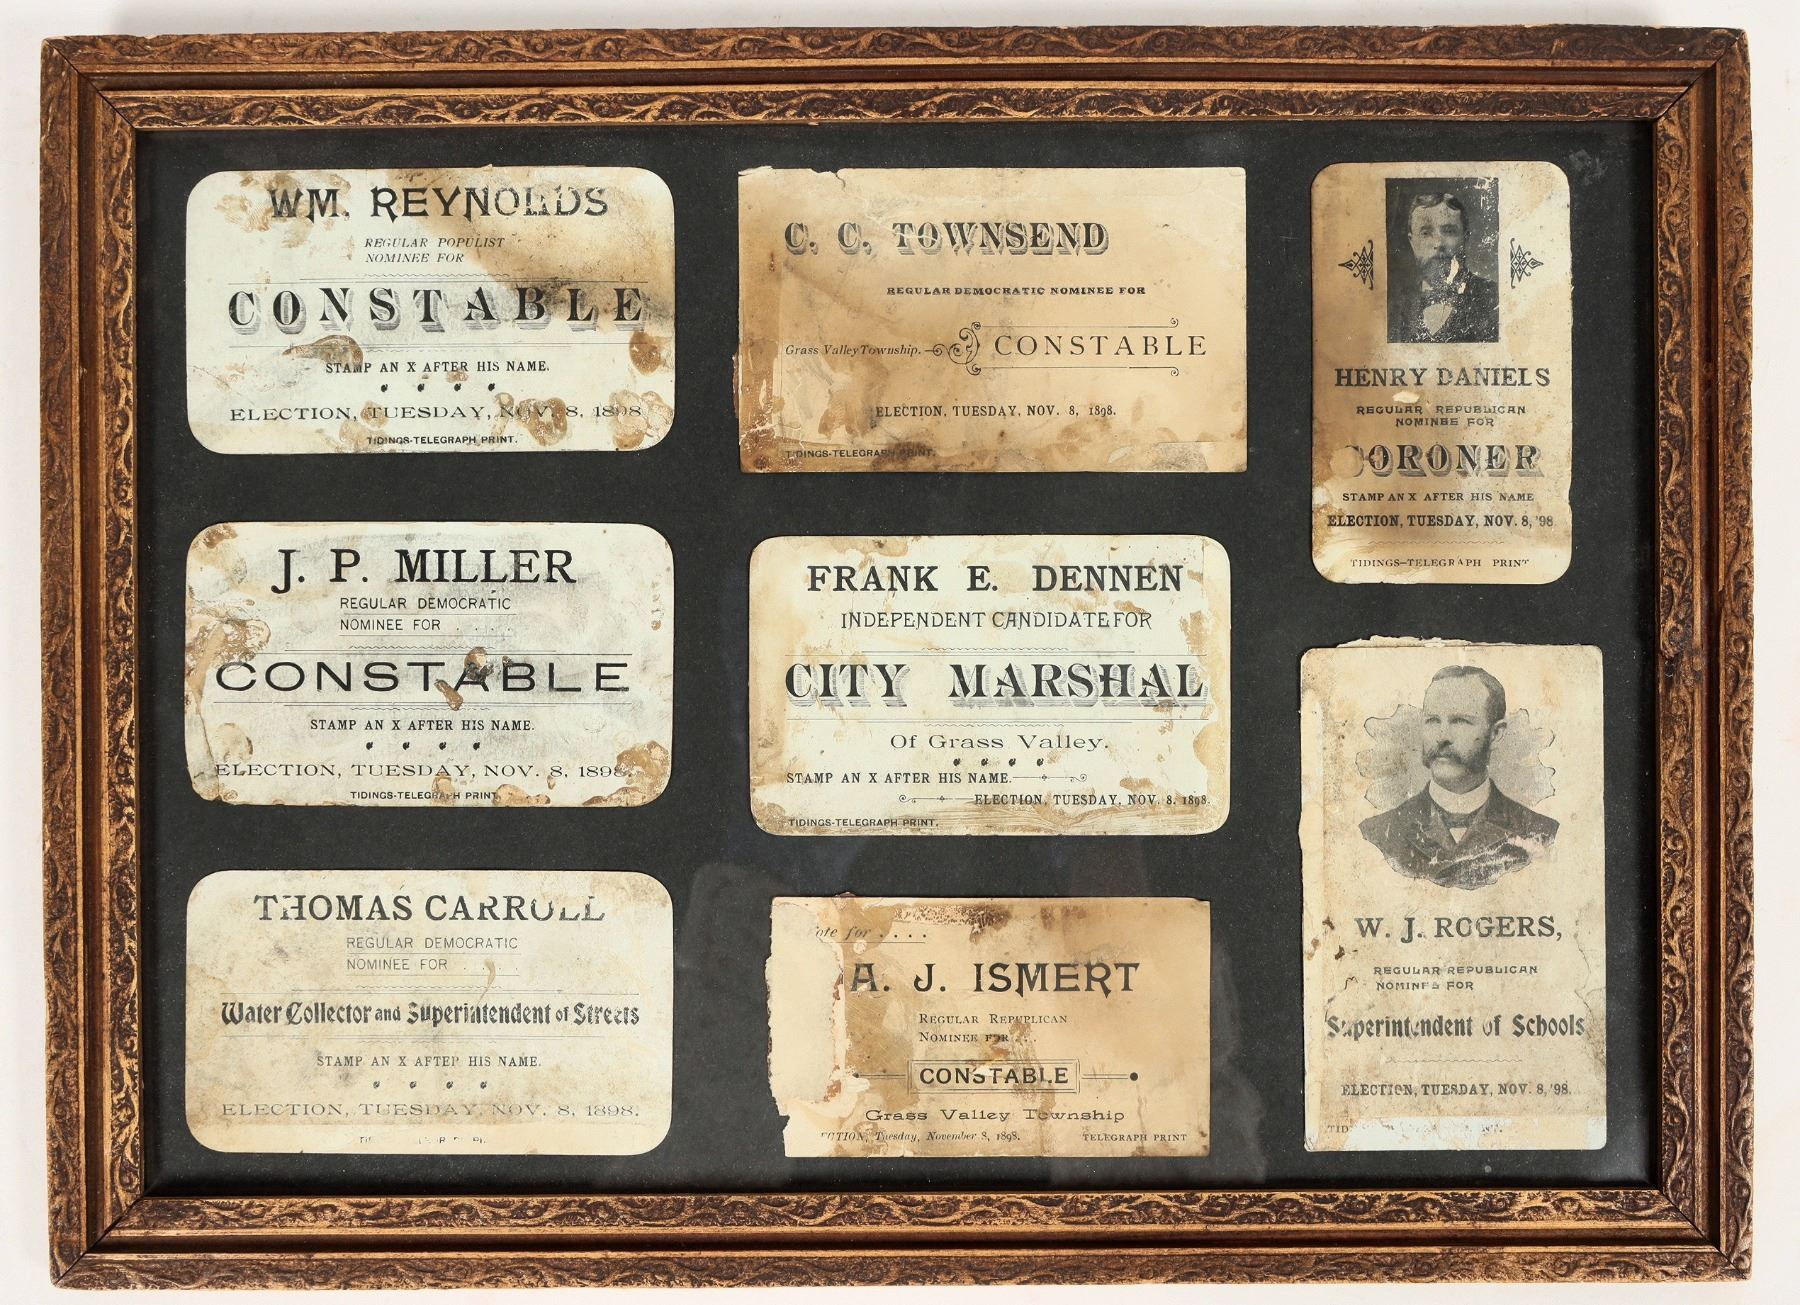 WM. REYNOLDS
REGULAR POPULIST
NOMINEE FOR
CONSTABLE
STAMP AN X AFTER HIS NAME.
ELECTION, TUESDAY, NOV. 8, 1898
TIDINGS-TELEGRAPH PRINT.
J. P. MILLER
REGULAR DEMOCRATIC
NOMINEE FOR . . . .
CONSTABLE
STAMP AN X AFTER HIS NAME.
ELECTION, TUESDAY, NOV. 8, 1898.
TIDINGS-TELEGRAPH PRINT
THOMAS CARROLL
REGULAR DEMOCRATIC
NOMINEE FOR . . . .
Water Collector and Superintendent of Streets
STAMP AN X AFTER HIS NAME.
ELECTION, TUESDAY, NOV. 8, 1898.
C. C. TOWNSEND
REGULAR DEMOCRATIC NOMINEE FOR
Grass Valley Township. CONSTABLE
ELECTION, TUESDAY, NOV. 8, 1898.
TIDINGS-TELEGRAPH PRINT.
FRANK E. DENNEN
INDEPENDENT CANDIDATE FOR
CITY MARSHAL
Of Grass Valley.
STAMP AN X AFTER HIS NAME.
ELECTION, TUESDAY, NOV. 8. 1898.
TIDINGS-TELEGRAPH PRINT.
ote for . . . .
A. J. ISMERT
REGULAR REPUBLICAN
NOMINEE FOR . . .
CONSTABLE
Grass Valley Township
CTION, Tuesday, November 8, 1898. TELEGRAPH PRINT
HENRY DANIELS
REGULAR REPUBLICAN
NOMINEE FOR
CORONER
STAMP AN X AFTER HIS NAME
ELECTION, TUESDAY, NOV. 8, '98
TIDINGS-TELEGRAPH PRINT
W. J. ROGERS,
REGULAR REPUBLICAN
NOMINEE FOR
Superintendent of Schools
ELECTION, TUESDAY, NOV. 8, '98.